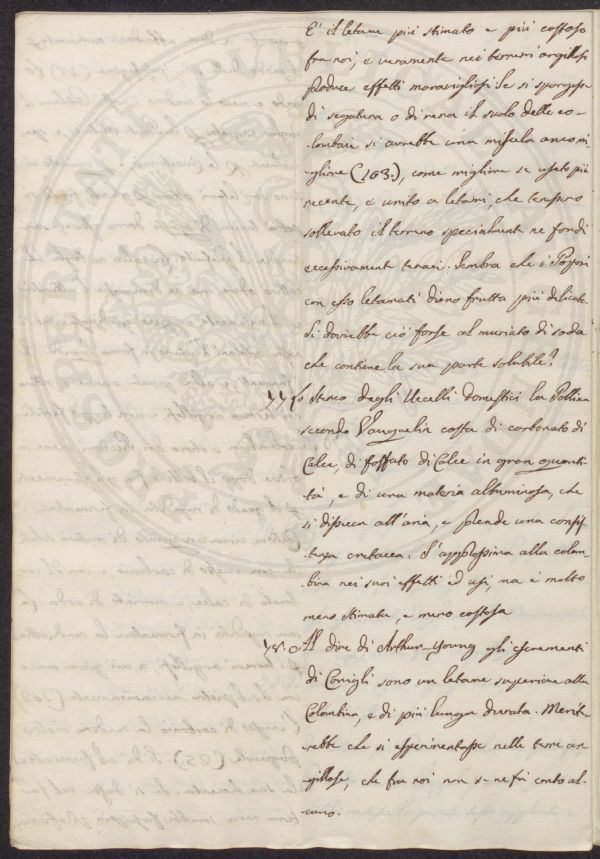 E' il letame più stimato e più costoso
fra noi, e veramente nei terreni argillosi
produce effetti maravigliosi. Se si spargesse
di segatura o di rena il suolo delle co-
lombaie si avrebbe una miscela anco mi-
gliore (103.), come migliore se usato più
recente, e unito a letami, che tengano
sollevato il terreno specialmente ne fondi
eccessivamente tenaci. Sembra che i Poponi
con esso letamati dieno frutta più delicate.
Si dovrebbe ciò forse al muriato di soda
che contiene la sua parte solubile?
77 Lo Sterco degli Uccelli domestici la Pollina
secondo Vauquelin costa di carbonato di
Calce, di fosfato di Calce in gran quanti-
tà, e di una materia albuminosa, che
si dissecca all'aria, e prende una consis-
tenza cretacea. S'approssima alla colom-
bina nei suoi effetti ed usi, ma è molto
meno stimata, e meno costosa
78. Al dire di Arthur-Young gli escrementi
di Conigli sono un letame superiore alla
Colombina, e di più lunga durata. Merite-
rebbe che si esperimentasse nelle terre ar-
gillose, che fra noi non se ne fà conto al-
cuno.